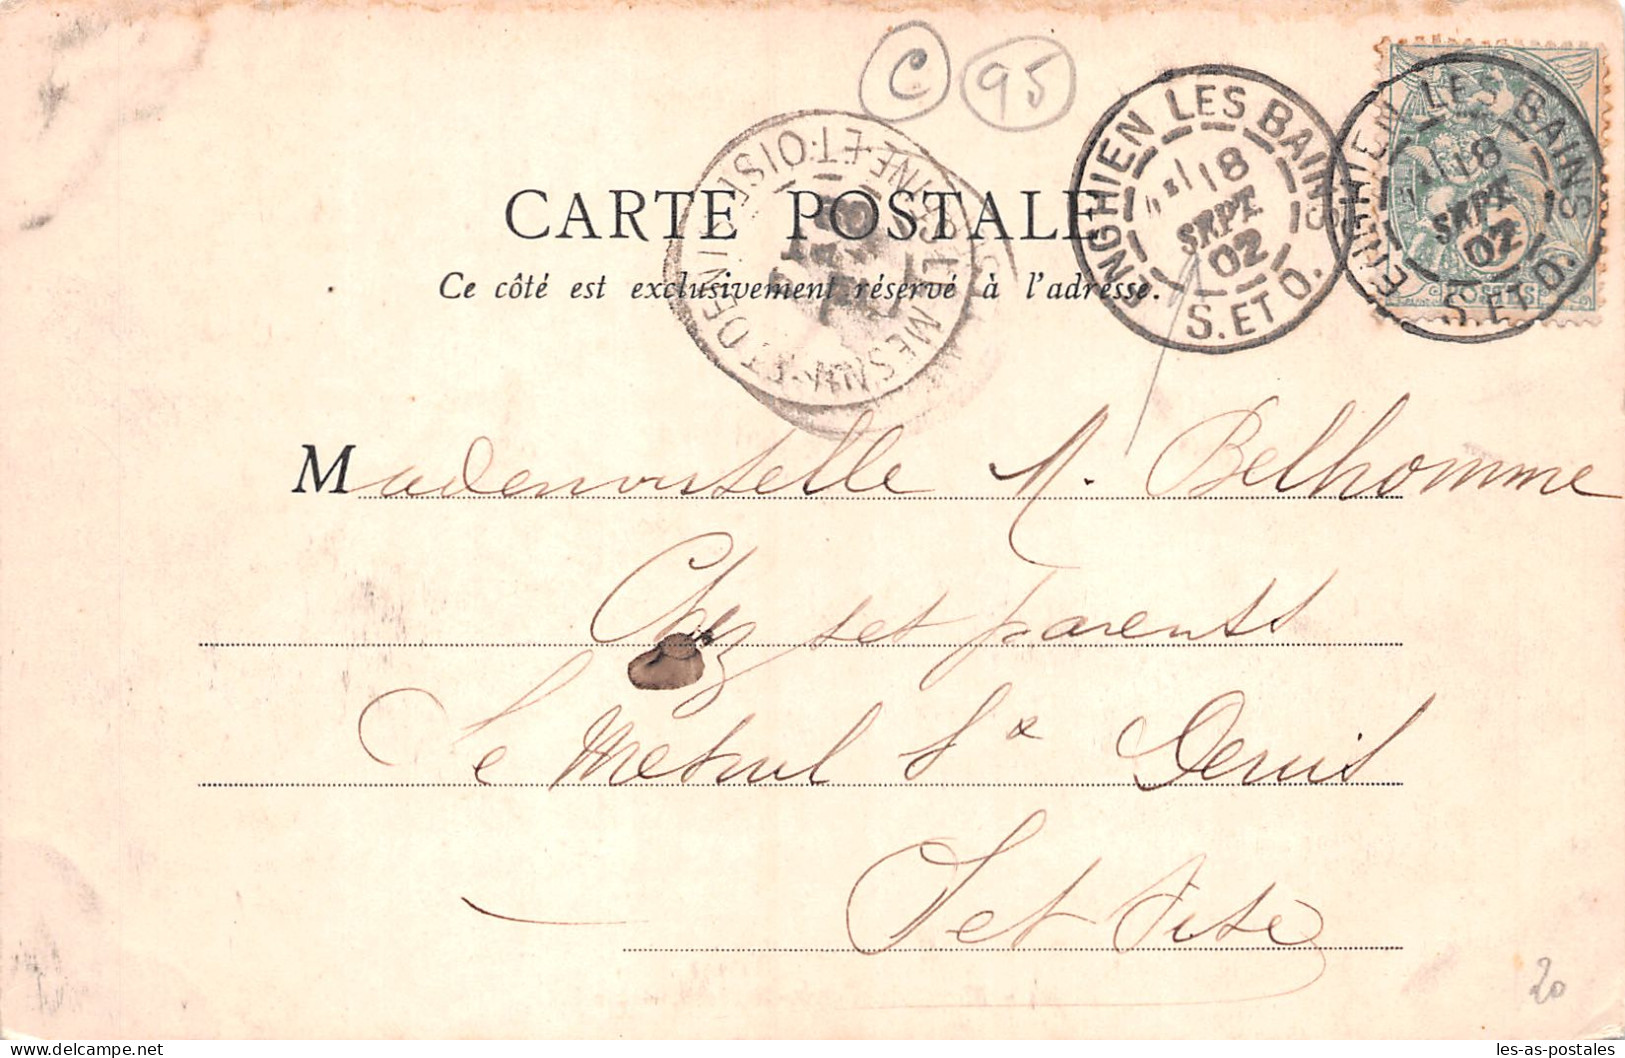 C 95
ENGHIEN LES BAINS
18
SEPT
02
S. ET O.
ENGHIEN LES BAINS
18
SEPT
02
S. ET O.
POSTES
SEINE-ET-OISE
CARTE POSTALE
Ce côté est exclusivement réservé à l'adresse.
Mademoiselle M. Belhomme
Chez ses parents
Le Mesnil St Denis
S et Oise
20
les-as-postales